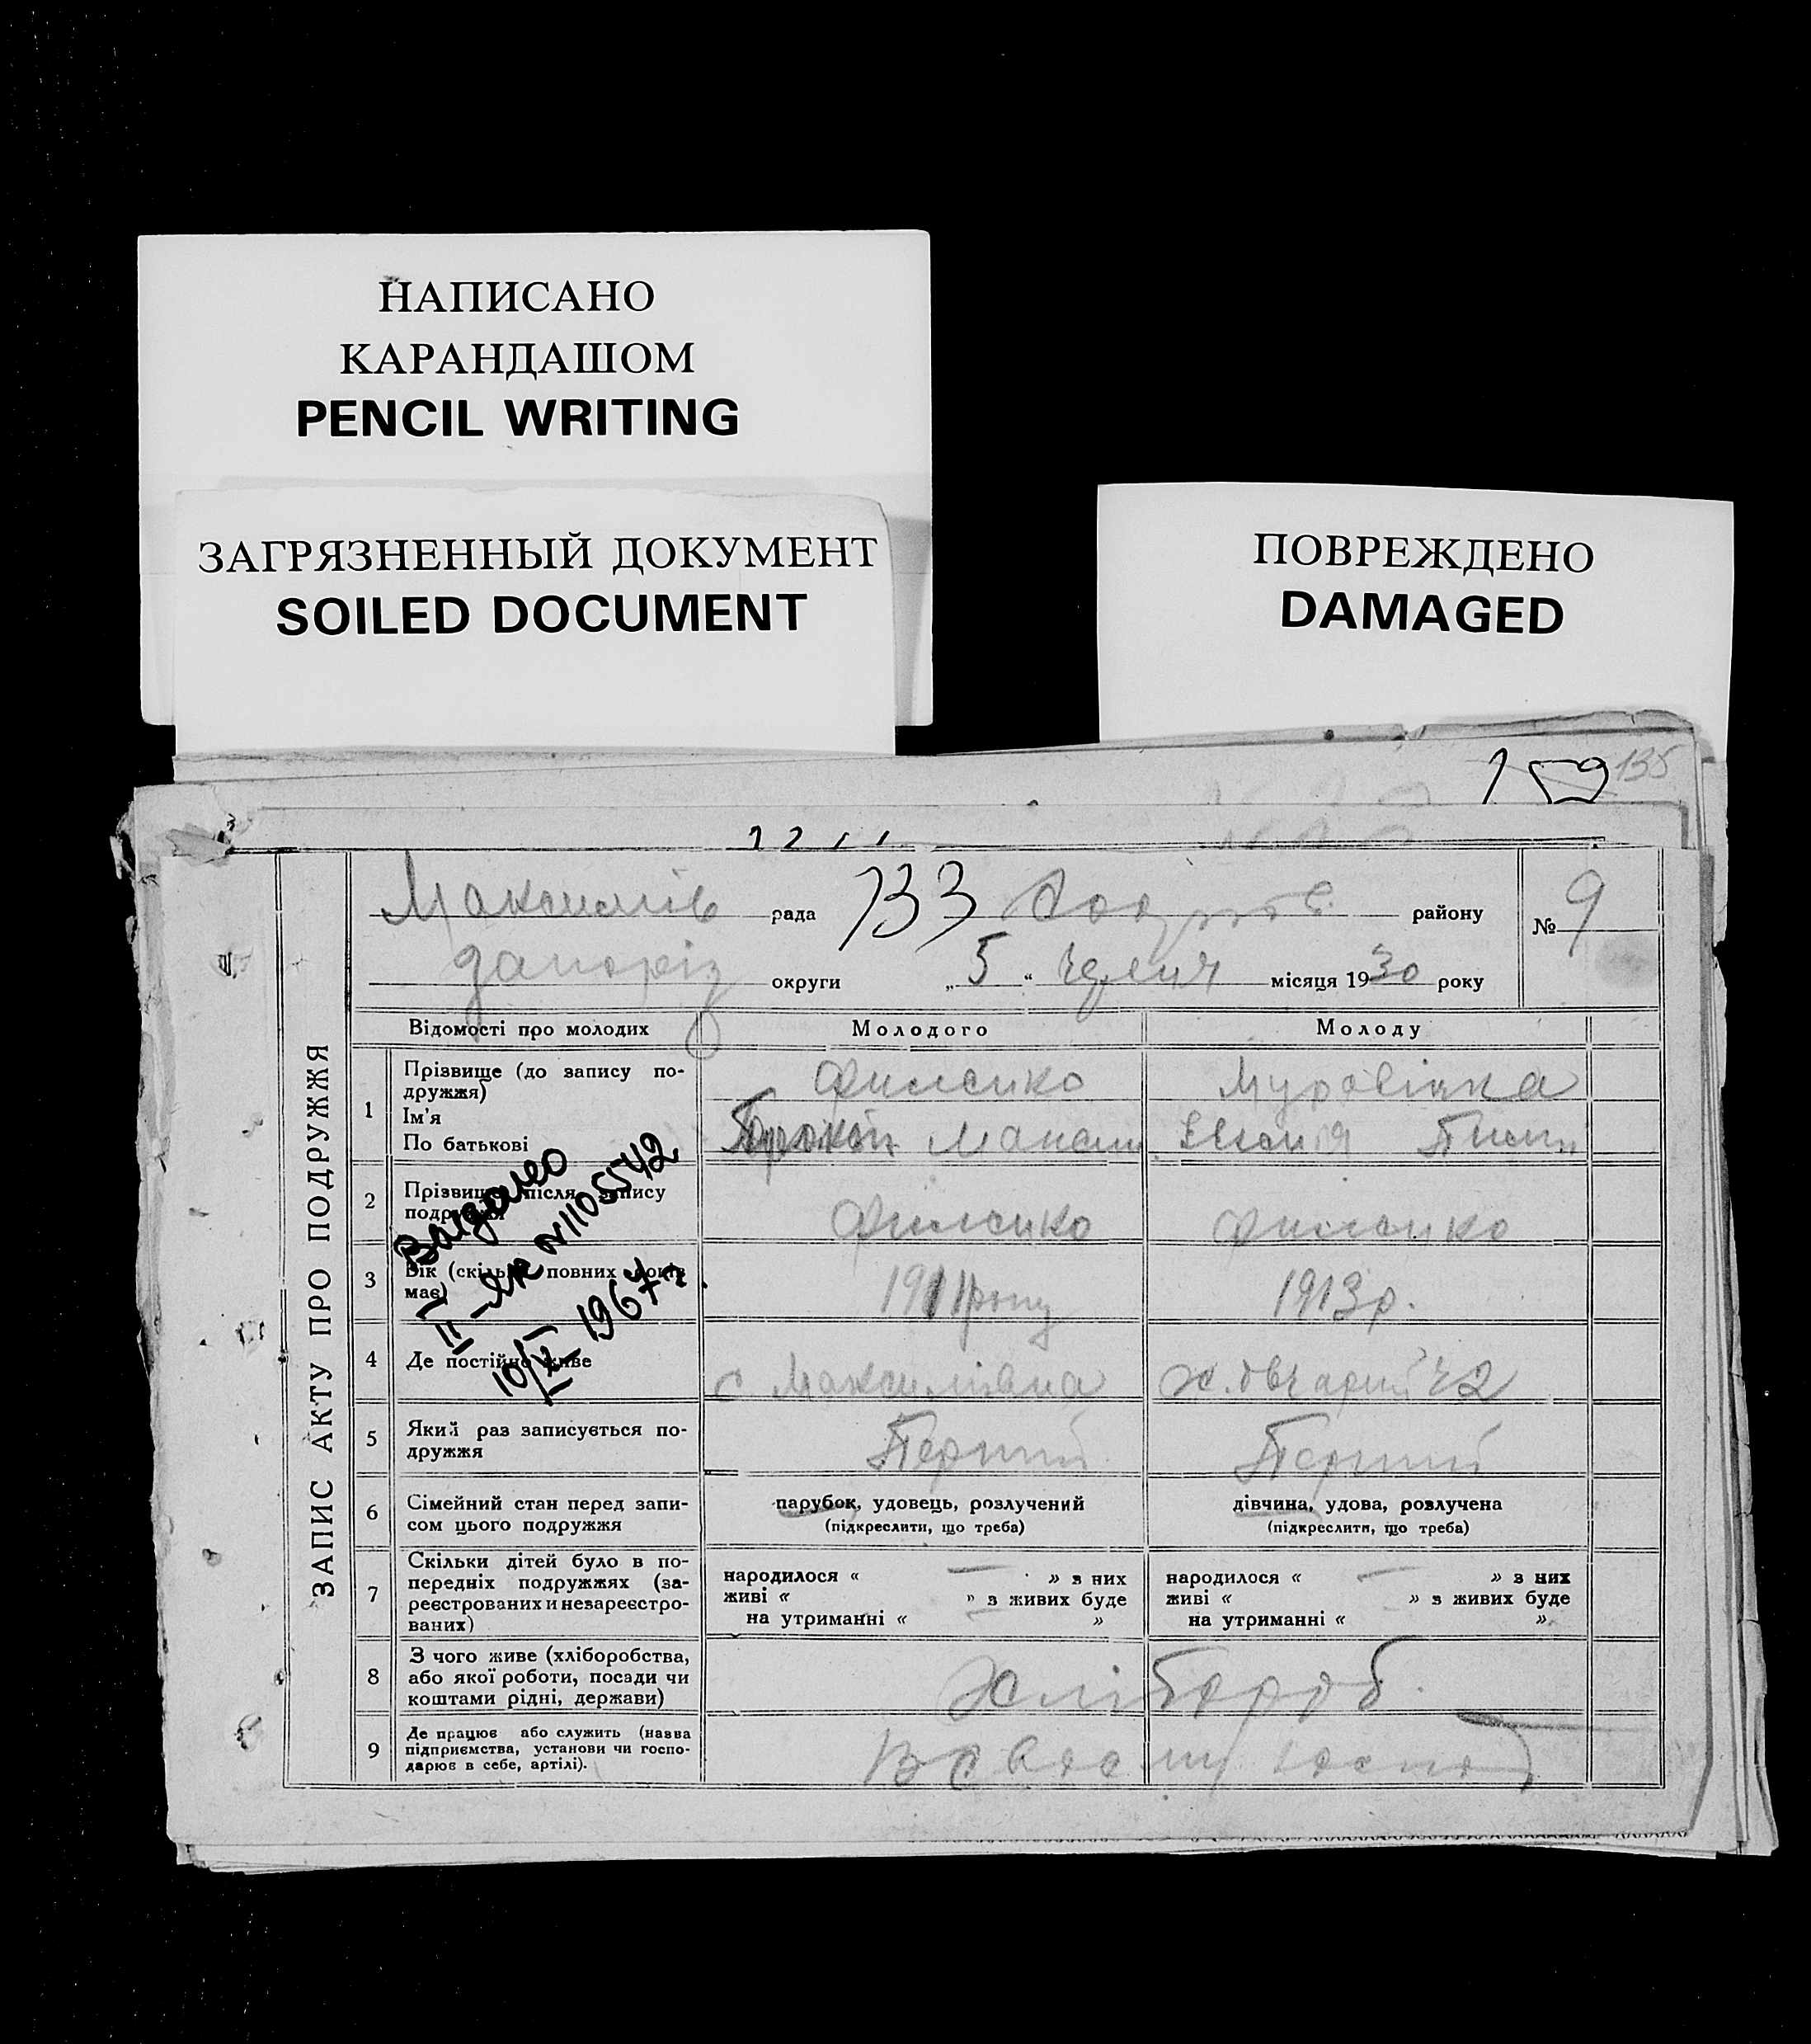 НАПИСАНО
КАРАНДАШОМ
PENCIL WRITING
ЗАГРЯЗНЕННЫЙ ДОКУМЕНТ
SOILED DOCUMENT
ПОВРЕЖДЕНО
DAMAGED
159 135
ЗАПИС АКТУ ПРО ПОДРУЖЖЯ
Максимлів рада 133 району № 9
Запоріз округи „ 5 “ Червня місяця 1930 року
Відомості про молодих Молодого Молоду
1 Прізвище (до запису подружжя) Фисенко
Ім'я
По батькові Максим.
2 Прізвище після запису подружжя Фисенко Фисенко
3 Вік (скільки повних років має) 1911 року 1913 р.
4 Де постійно живе с. Максимлівка х.
5 Який раз записується подружжя Перший Перший
6 Сімейний стан перед записом цього подружжя парубок, удовець, розлучений дівчина, удова, розлучена
(підкреслити, що треба) (підкреслити, що треба)
7 Скільки дітей було в попередніх подружжях (зареєстрованих и незареєстрованих) народилося « — » з них народилося « — » з них
живі « » з живих буде живі « » з живих буде
на утриманні « » на утриманні « »
8 З чого живе (хліборобства, або якої роботи, посади чи коштами рідні, держави) Хлібороб
9 Де працює або служить (назва підприємства, установи чи господарює в себе, артілі). В своєму
Видано
II-ЯК №1105542
10/V 1967г.